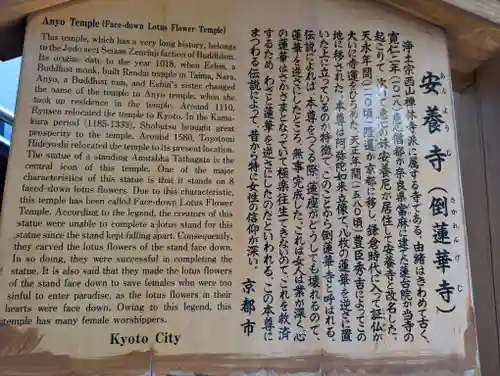 Anyo Temple (Face-down Lotus Flower Temple)
This temple, which has a very long history, belongs
to the Jodo sect Seizan Zenrinji faction of Buddhism.
Its origins date to the year 1018, when Eshin, a
Buddhist monk, built Rendai temple in Taima, Nara.
Anyo, a Buddhist nun, and Eshin's sister changed
the name of the temple to Anyo temple, when she
took up residence in the temple. Around 1110,
Ryusen relocated the temple to Kyoto. In the Kama-
kura period (1185-1333), Shobutsu brought great
prosperity to the temple. Around 1580, Toyotomi
Hideyoshi relocated the temple to its present location.
The statue of a standing Amitabha Tathagata is the
central icon of this temple. One of the major
characteristics of this statue is that it stands on 8
faced-down lotus flowers. Due to this characteristic,
this temple has been called Face-down Lotus Flower
Temple. According to the legend, the creators of this
statue were unable to complete a lotus stand for this
statue since the stand kept falling apart. Consequently,
they carved the lotus flowers of the stand face down.
In so doing, they were successful in completing the
statue. It is also said that they made the lotus flowers
of the stand face down to save females who were too
sinful to enter paradise, as the lotus flowers in their
hearts were face down. Owing to this legend, this
temple has many female worshippers.
Kyoto City
安養寺（倒蓮華寺）
あんようじ
さかれんげじ
浄土宗西山禅林寺派に属する寺である。由緒はきわめて古く、
寛仁二年（一〇一八）恵心僧都が奈良県當麻に建てた蓮台院が当寺の
起こりで、次いで恵心の妹安養尼が居住して安養寺と改名した。
天永年間（一一一〇頃）隆暹が京都に移し、鎌倉時代に入って証仏が
大いに寺運を弘めた。天正年間（一五八〇頃）豊臣秀吉によってこの
地に移された。本尊は阿弥陀如来立像で、八枚の蓮華を逆さに置
いた上に立っているのが特徴で、このことから倒蓮華寺と呼ばれる。
伝説によれば、本尊をつくる際、蓮座がどうしても壊れるので、
蓮華を逆さにしたところ、無事完成した。これは女人は業が深く、心
の蓮華がさかさまとなっていて極楽往生できないので、これを救済
するため、わざと蓮華を逆さにしたのだといわれる。この本尊に
まつわる伝説によって、昔から特に女性の信仰が深い。
京都市